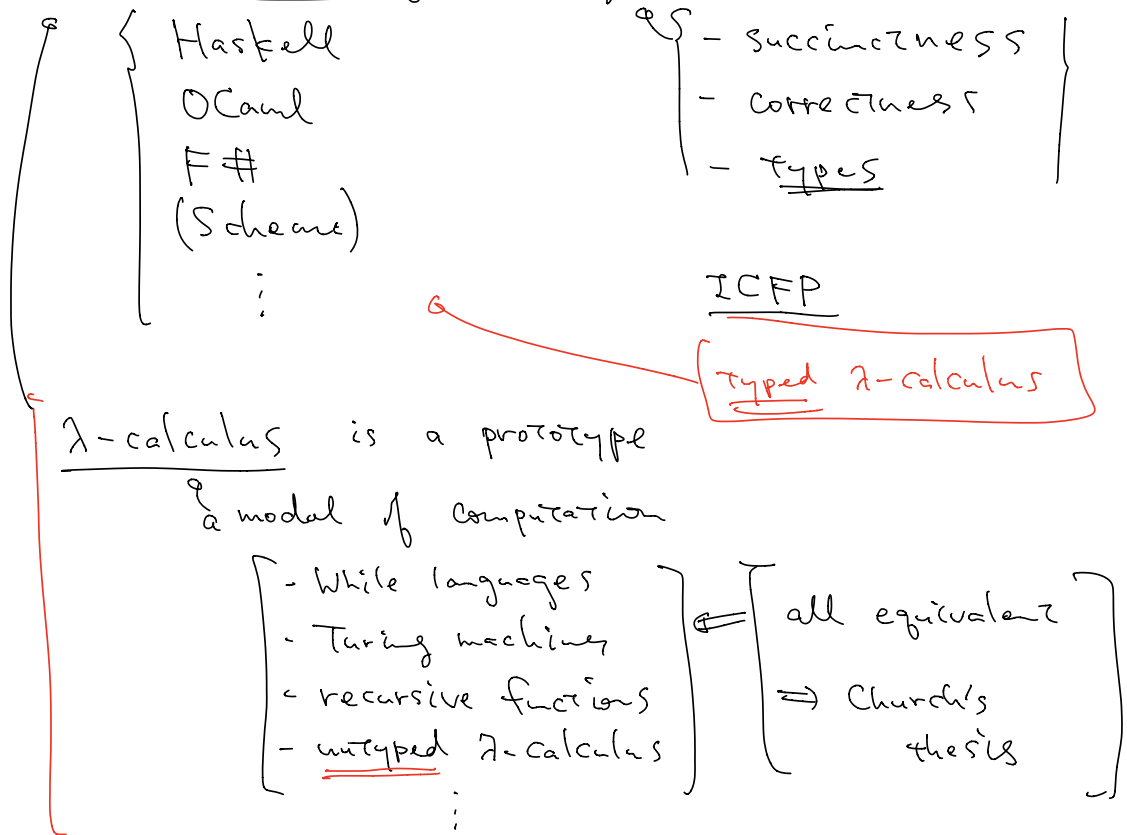 Haskell
OCaml
F#
(Scheme)
⋮
- succinctness
- correctness
- types
ICFP
typed λ-calculus
λ-calculus is a prototype
a modal of computation
- While languages
- Turing machines
- recursive functions
- untyped λ-calculus
⋮
all equivalent
⇒ Church's
thesis